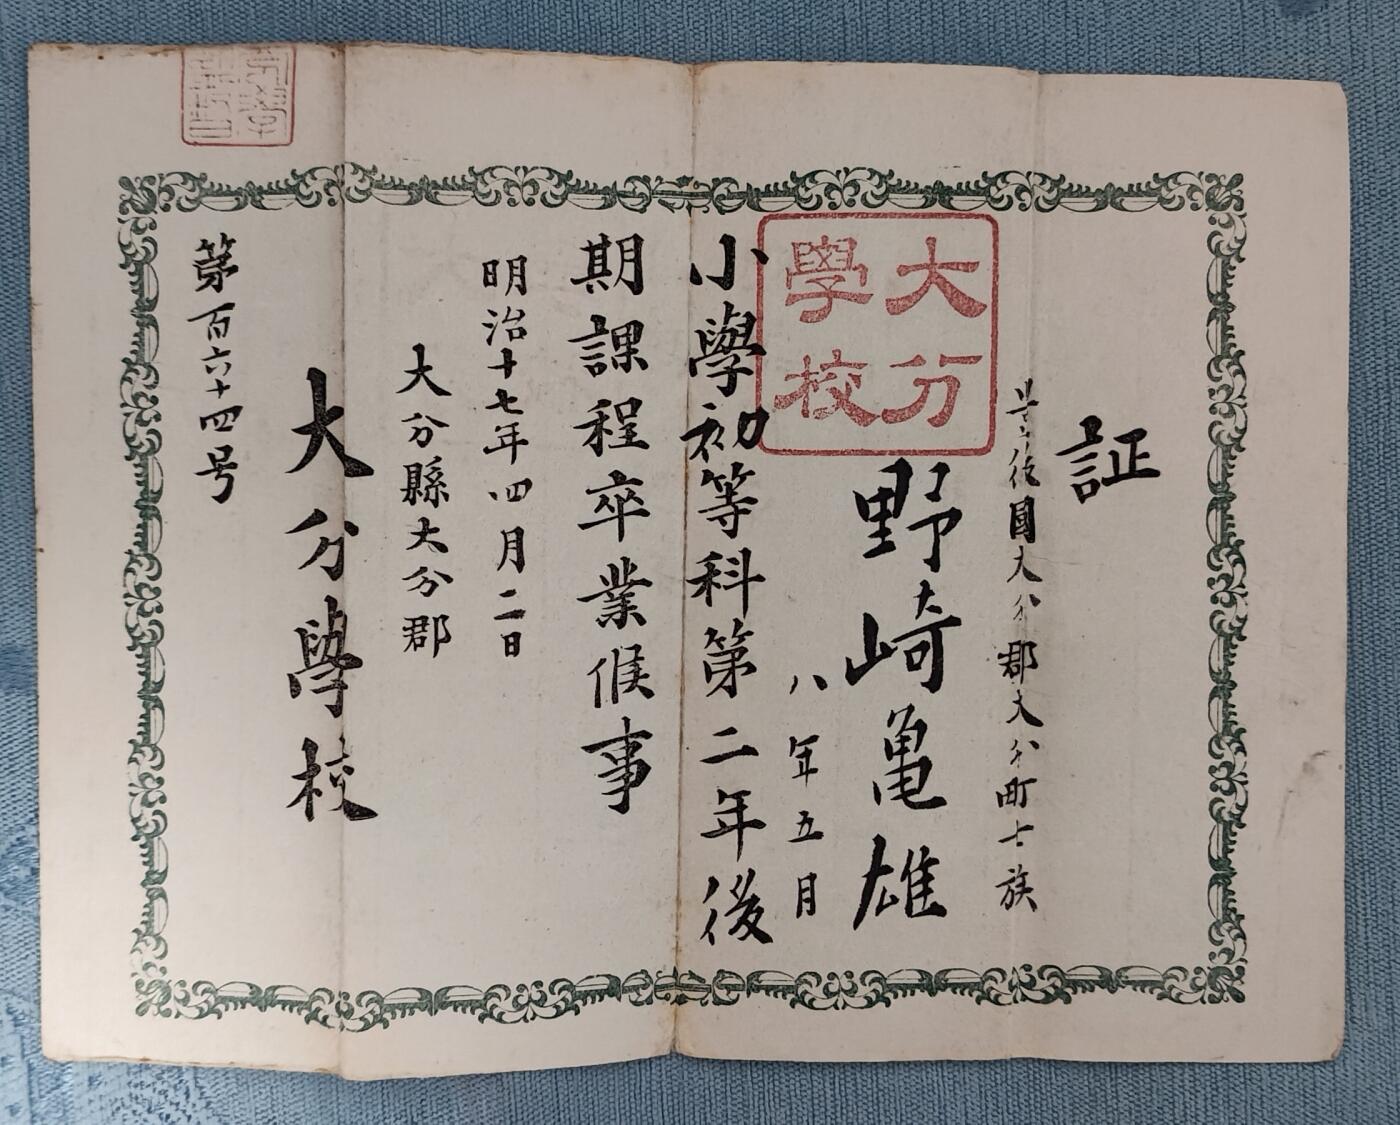 証
豊後國大分郡大分町士族
野崎亀雄
八年五月
大分
學校
小學初等科第二年後
期課程卒業候事
明治十七年四月二日
大分縣大分郡
大分學校
第百六十四号